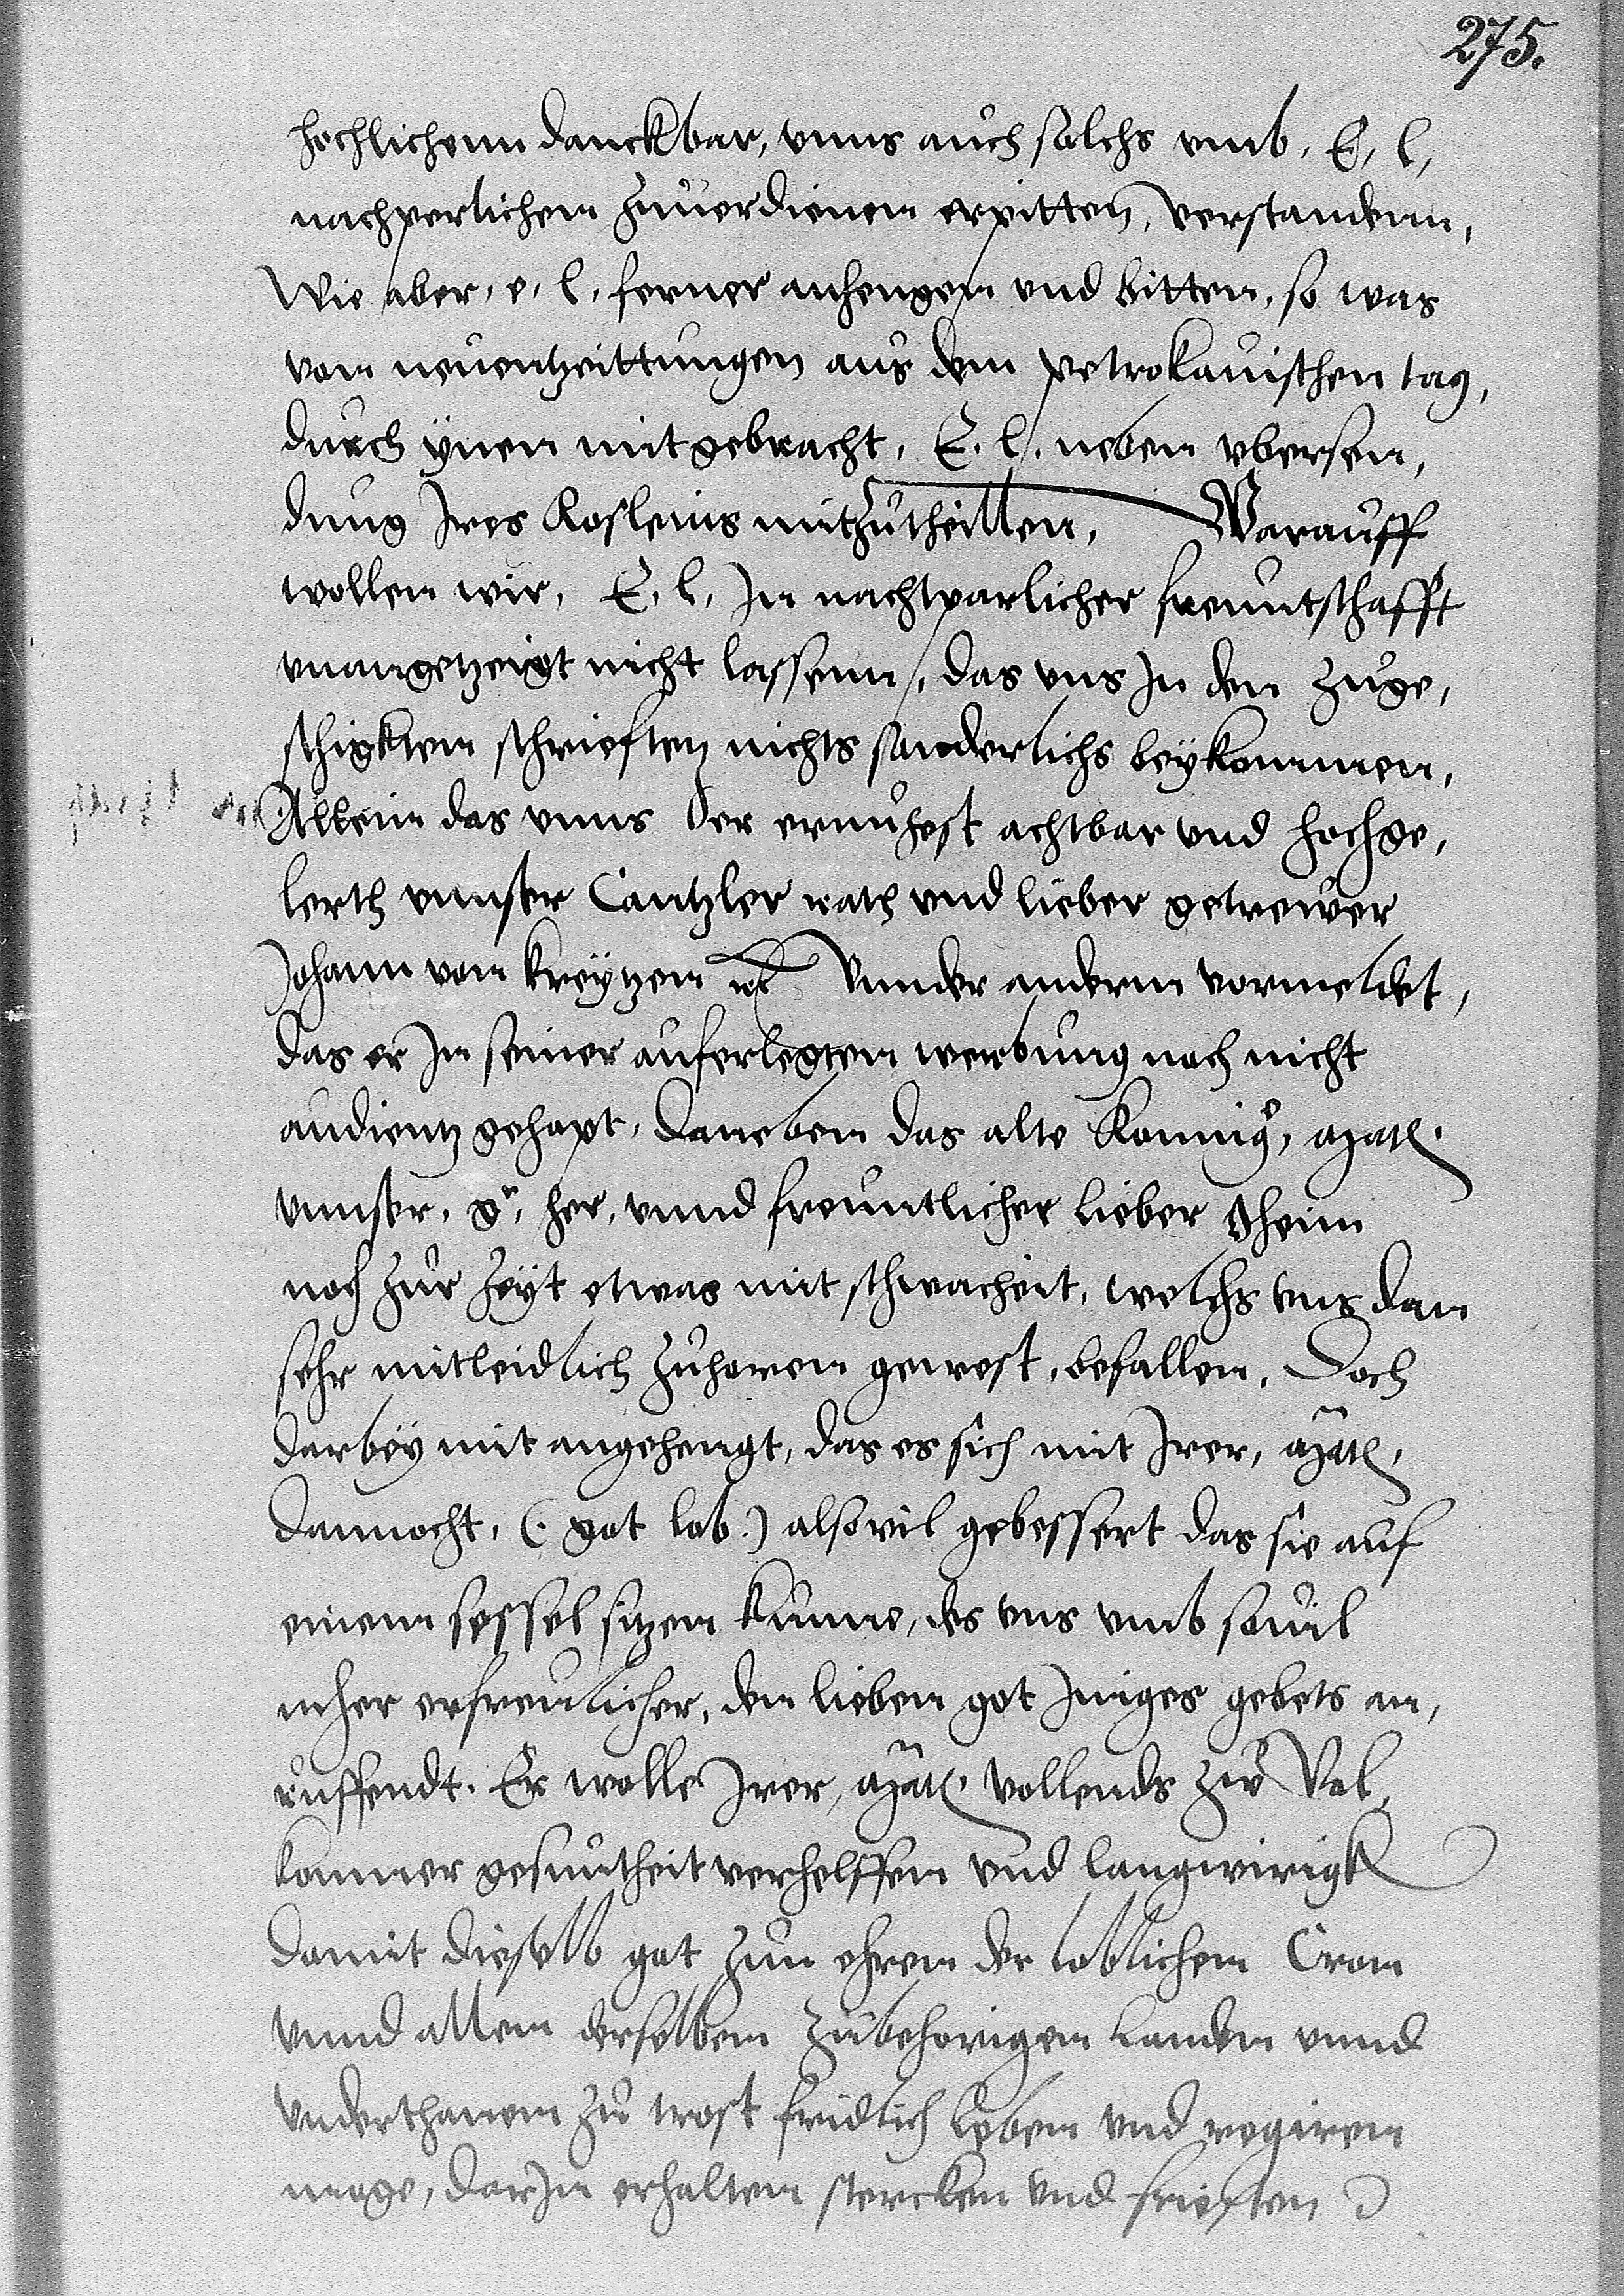 275.
hochlichenn danckbar, vnns auch solchs vmb, E, l,
nachperlichenn zuuerdienenn erpitten, verstandenn,
Wie aber, e, l, ferner anhengen vnd bitten, so was
von neuentzeittungen aus dem petrokauischen tag,
durch ÿnen mitgebracht, E. l. neben vbersen,
dung Ires Rosleins mitzutheillen, Warauff
wollen wir, E, l, In nachtparlicher freuntschafft
vnangetzeigt nicht lassenn, das vns In den zuge,
schigkten schriefften nichts sonderlichs beÿkommen,
Allein das vnns Der ernuhest achtbar vnd hochge,
lerth vnnser Cantzler rath vnd lieber getrewer
Johann von Kreÿtzen etc Vnnder anderm vormeldet,
das er In seiner auferlegten werbung noch nicht
audientz gehapt, daneben das alte Konnig, mat.
vnnser, gr, her, vnnd freuntlicher lieber Oheim
noch zur zeÿt etwas mit schwacheit, welchs vns dan
sehr mitleidlich zuhoren gewest, befallen, Doch
darbeÿ mit angehengt, das es sich mit Irer, mat,
dannocht, (: got lob :) also vil gebessert das sie auf
einem sessel sitzen kunne, des vns vmb souil
meher erfreulicher, den lieben got Inniges gebets an,
ruffendt. Er wolle Irer, mat, vollends zur Vol,
komner gesuntheit verhelffen vnd langwirigk
damit dieselb got zun ehren der loblichen Cron
vnnd allen derselben zubehorigen landen vnnd
vnderthanen zu trost fridlich leben vnd regiren
moge, darIn erhalten stercken vnd friesten